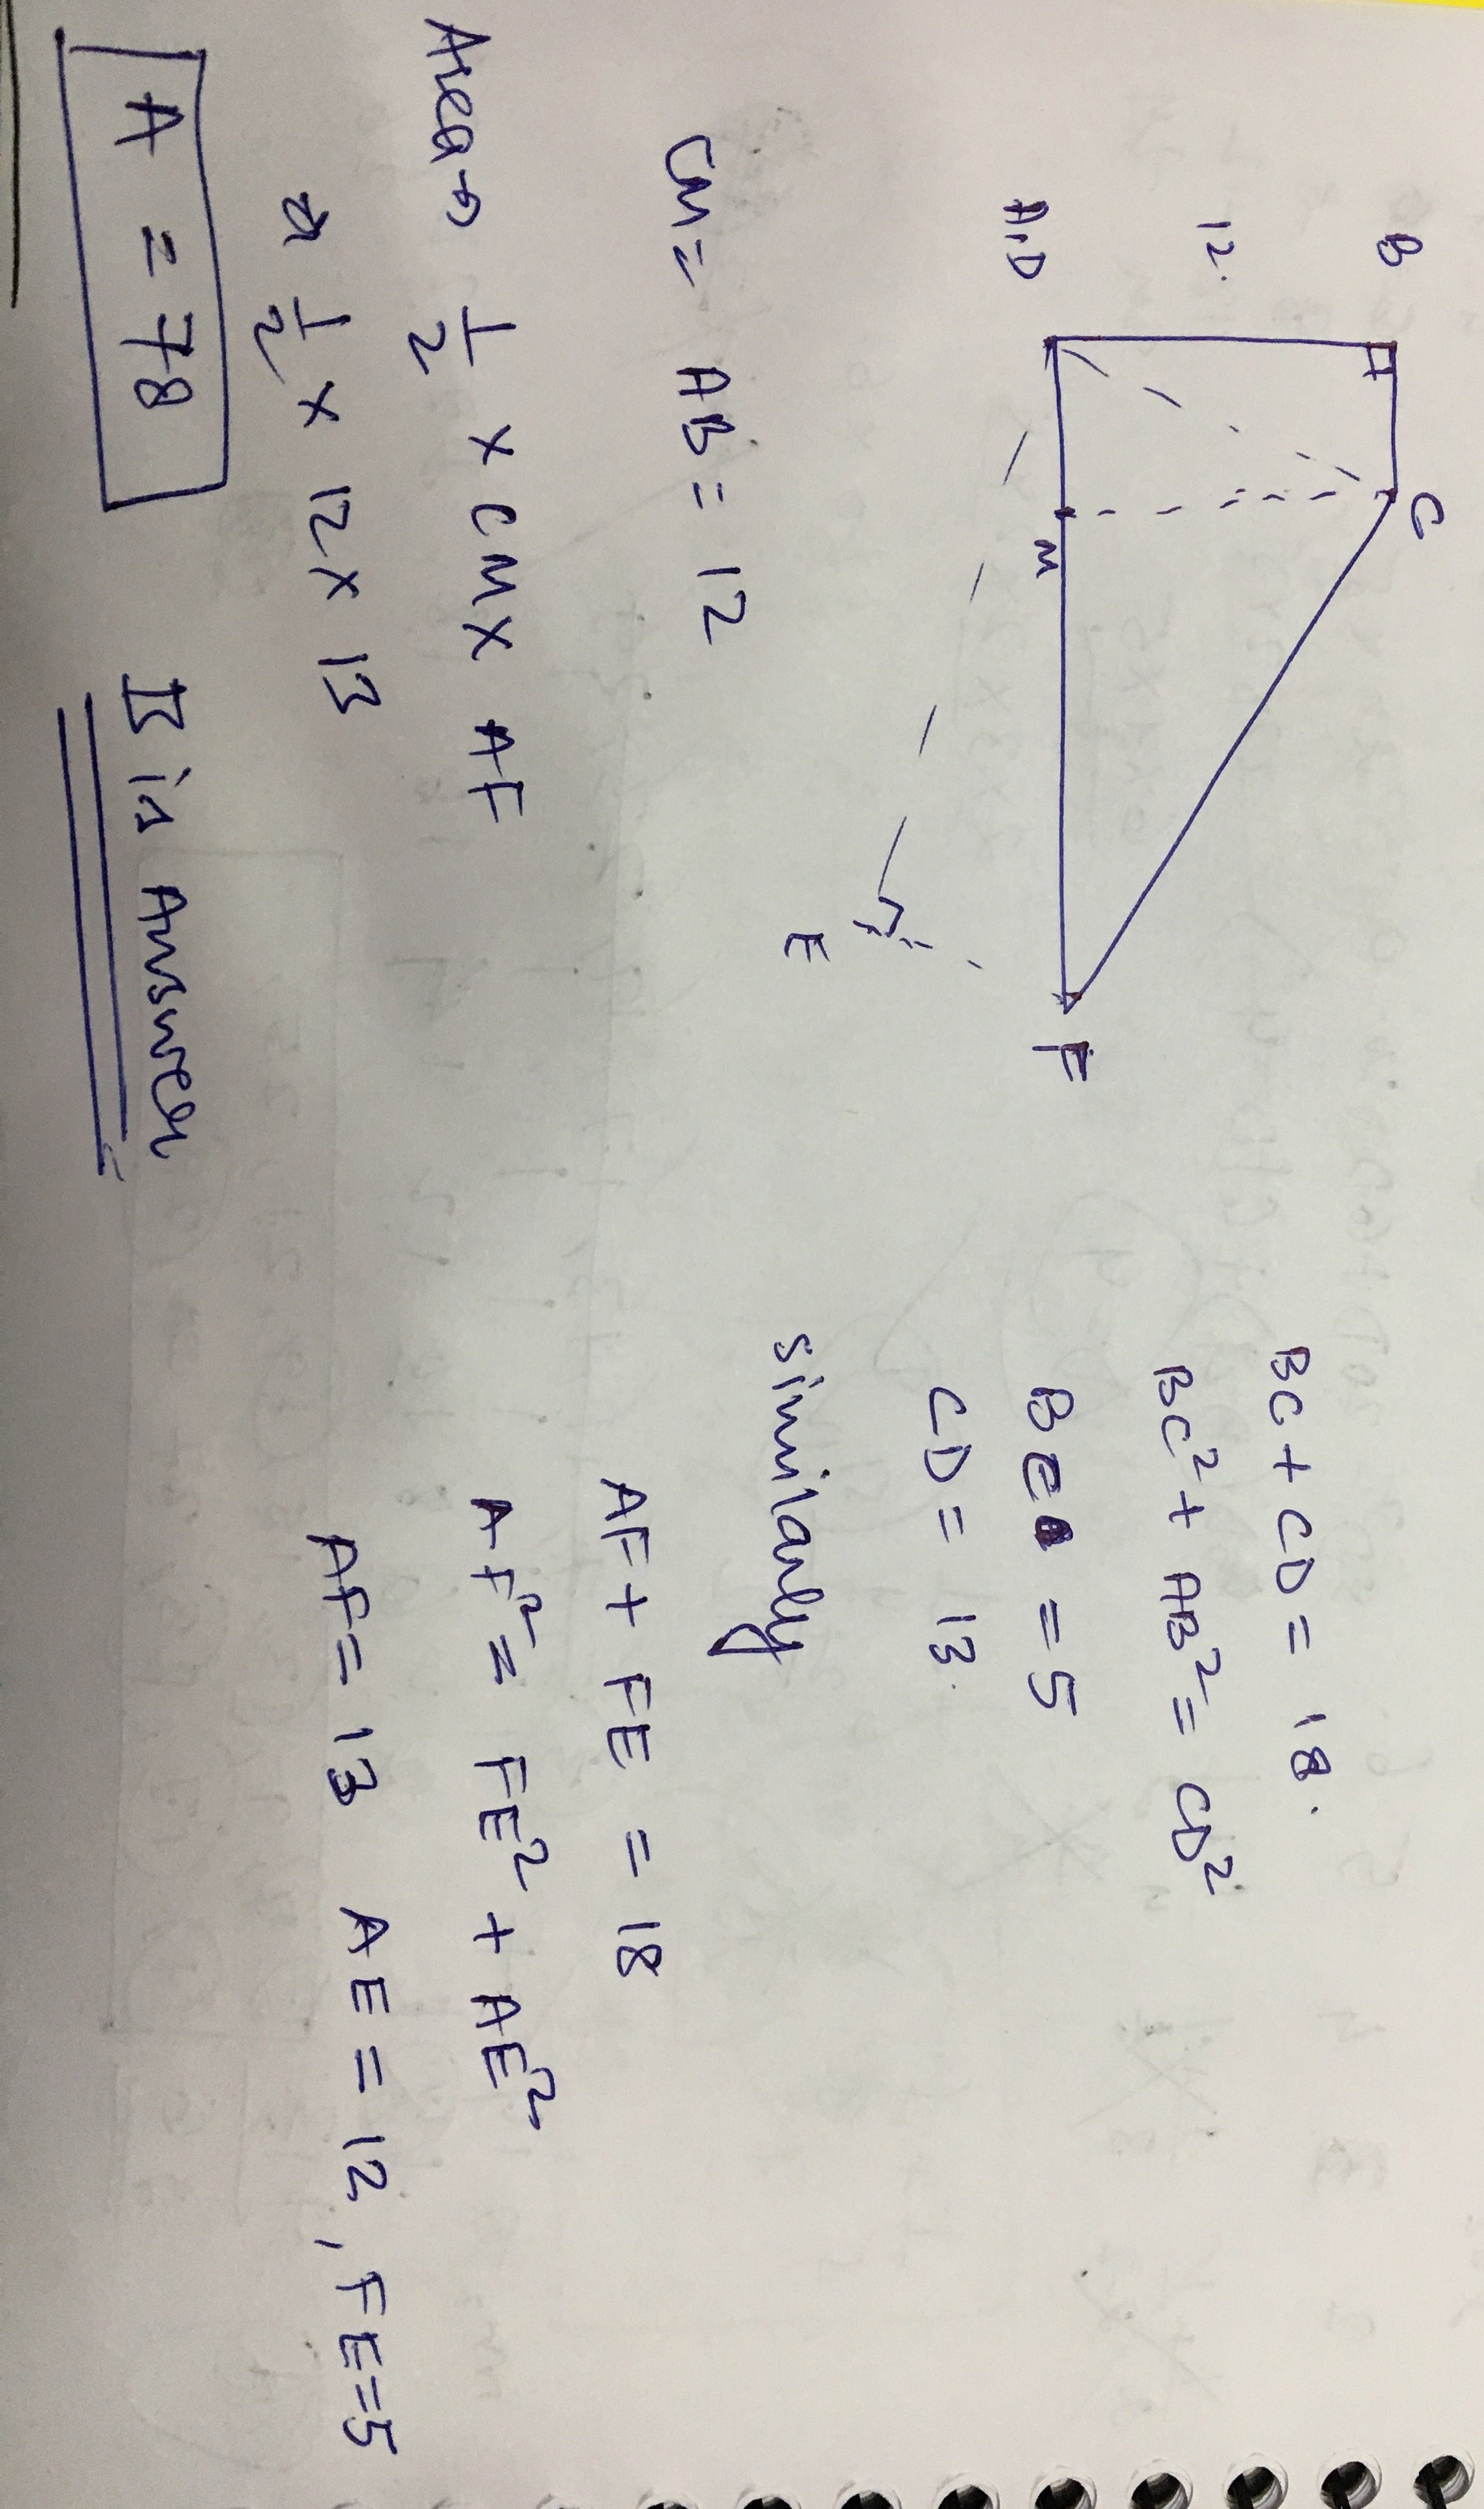 B
C
12.
A,D
M
F
E
CM = AB = 12
Area → 1/2 × CM × AF
⇒ 1/2 × 12 × 13
A = 78
II is Answer
BC + CD = 18.
BC² + AB² = CD²
BC = 5
CD = 13.
similarly
AF + FE = 18
AF² = FE² + AE²
AF = 13 AE = 12, FE = 5